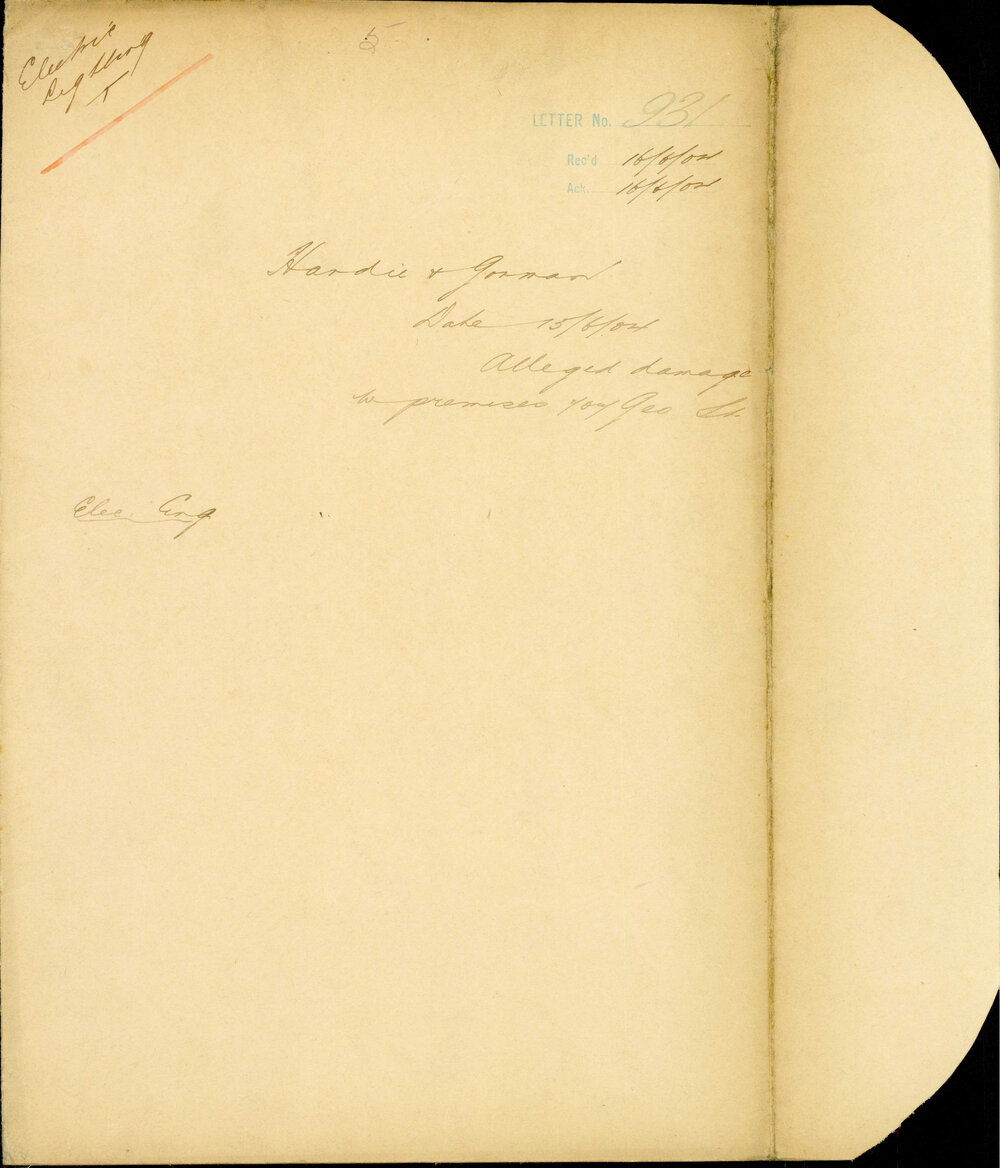 Electric
Lighting
5
LETTER No. 931
Rec'd 16/6/04
Ack. 16/6/04
Hardie & Gorman
Date 15/6/04
Alleged damage
to premises Geo St.
Elec. Eng